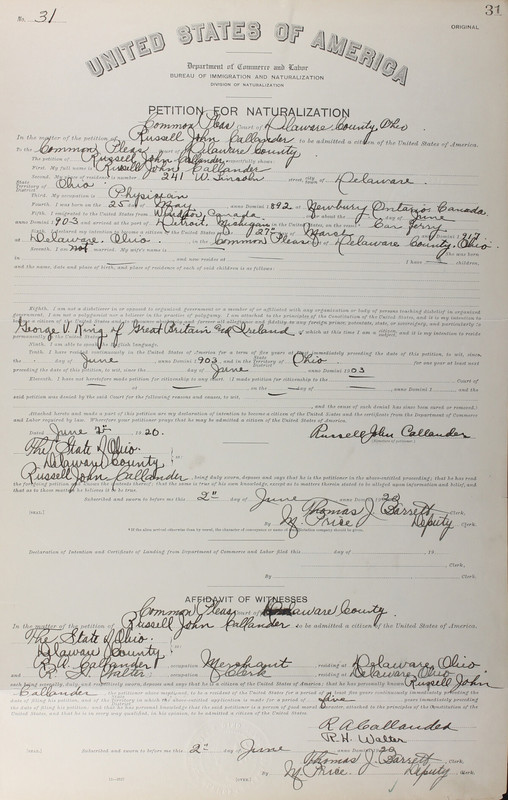 No. 31
31
ORIGINAL
UNITED STATES OF AMERICA
Department of Commerce and Labor
BUREAU OF IMMIGRATION AND NATURALIZATION
DIVISION OF NATURALIZATION
PETITION FOR NATURALIZATION
Common Pleas Court of Delaware County, Ohio.
In the matter of the petition of Russell John Callander to be admitted a citizen of the United States of America.
To the Common Pleas Court of Delaware County
The petition of Russell John Callander respectfully shows:
First. My full name is Russell John Callander
Second. My place of residence is number 241 W. street, city town of Delaware
State Territory of District Ohio
Third. My occupation is Physician
Fourth. I was born on the 25th day of May, anno Domini 1892 at Newbury Ontario Canada
Fifth. I emigrated to the United States from Windsor, Canada, on or about the day of June
903 and arrived at the port of Detroit Michigan in the United States, on the vessel Car Ferry
Sixth. I declared my intention to become a citizen of the United States on the 27th day of March anno Domini 917
at Delaware, Ohio, in the Common Pleas Court of Delaware County, Ohio.
Seventh. I am not married. My wife's name is she was born
in and now resides at I have children,
and the name, date and place of birth, and place of residence of each of said children is as follows:
Eighth. I am not a disbeliever in or opposed to organized government or a member of or affiliated with any organization or body of persons teaching disbelief in organized
government. I am not a polygamist nor a believer in the practice of polygamy. I am attached to the principles of the Constitution of the United States, and it is my intention to
become a citizen of the United States and to renounce absolutely and forever all allegiance and fidelity to any foreign prince, potentate, state, or sovereignty, and particularly to
George V King of Great Britain and Ireland, of which at this time I am a citizen subject, and it is my intention to reside
permanently in the United States.
Ninth. I am able to speak the English language.
Tenth. I have resided continuously in the United States of America for a term of five years at least immediately preceding the date of this petition, to wit, since,
the day of June, anno Domini 903, and in the State Territory District of Ohio for one year at least next
preceding the date of this petition, to wit, since the day of June, anno Domini 1903
Eleventh. I have not heretofore made petition for citizenship to any court. (I made petition for citizenship to the Court of
at on the day of, anno Domini 1 and the
said petition was denied by the said Court for the following reasons and causes, to wit,
and the cause of such denial has since been cured or removed.)
Attached hereto and made a part of this petition are my declaration of intention to become a citizen of the United States and the certificate from the Department of Commerce
and Labor required by law. Wherefore your petitioner prays that he may be admitted a citizen of the United States of America.
Dated June 2nd 1920.
Russell John Callander
The State of Ohio
Delaware County
Russell John Callander, being duly sworn, deposes and says that he is the petitioner in the above-entitled proceeding; that he has read
the foregoing petition and knows the contents thereof; that the same is true of his own knowledge, except as to matters therein stated to be alleged upon information and belief, and
that as to those matters he believes it to be true.
Subscribed and sworn to before me this 2nd day of June anno Domini 1920
[SEAL.]
Thomas J. Barrett, Clerk.
By M. Price Deputy Clerk.
Declaration of Intention and Certificate of Landing from Department of Commerce and Labor filed this day of, 19
Clerk.
By, Clerk.
AFFIDAVIT OF WITNESSES
Common Pleas Court of Delaware County.
In the matter of the petition of Russell John Callander to be admitted a citizen of the United States of America.
The State of Ohio
Delaware County
R. A. Callander, occupation Merchant, residing at Delaware, Ohio
and R. H. Walter, occupation Clerk, residing at Delaware, Ohio
each being severally, duly, and respectively sworn, deposes and says that he is a citizen of the United States of America; that he has personally known Russell John
Callander, the petitioner above mentioned, to be a resident of the United States for a period of at least five years continuously immediately preceding the
date of filing his petition, and of the State Territory District in which the above-entitled application is made for a period of five years immediately preceding
the date of filing his petition; and that he has personal knowledge that the said petitioner is a person of good moral character, attached to the principles of the Constitution of the
United States, and that he is in every way qualified, in his opinion, to be admitted a citizen of the United States.
R A Callander
R. H. Walter
Subscribed and sworn to before me this 2nd day of June, anno Domini 1920
[SEAL.]
Thomas J. Barrett, Clerk.
By M. Price Deputy Clerk.
[OVER.]